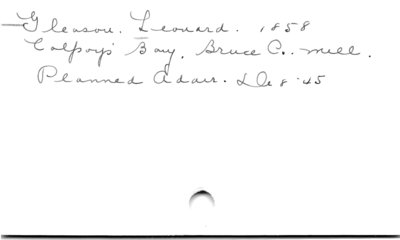 Gleason. Leonard. 1858
Colpoys' Bay. Bruce C.. mill.
Planned Adair. D 8 '45